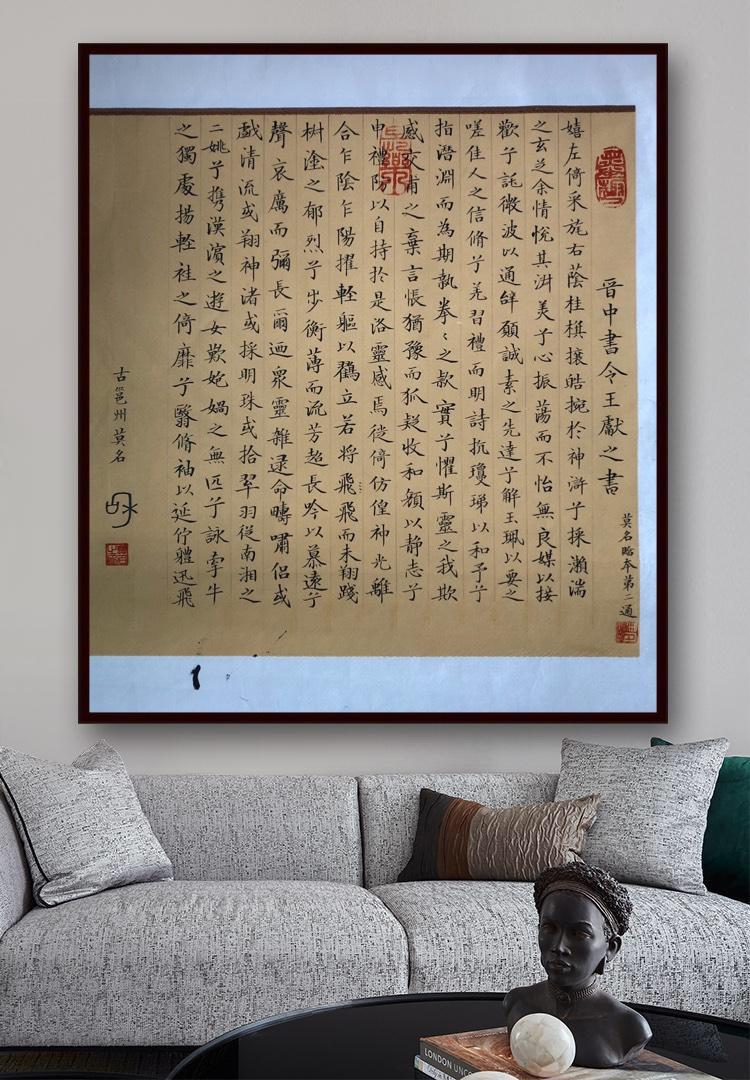 晉中書令王獻之書
莫名臨本第二通
嬉左倚采旄右蔭桂旗攘皓捥於神滸兮採瀨湍
之玄芝余情悅其淑美兮心振蕩而不怡無良媒以接
歡兮託微波以通辭願誠素之先達兮解玉珮以要之
嗟佳人之信脩兮羌習禮而明詩抗瓊珶以和予兮
指潛淵而為期執拳〻之款實兮懼斯靈之我欺
感交甫之棄言悵猶豫而狐疑收和顏以靜志兮
申禮防以自持於是洛靈感焉徙倚仿偟神光離
合乍陰乍陽擢輕軀以鶴立若將飛飛而未翔踐
樹塗之郁烈兮步衡薄而流芳超長吟以慕遠兮
聲哀厲而彌長爾迺眾靈雜遝命疇嘯侶或
戲清流或翔神渚或採明珠或拾翠羽從南湘之
二姚兮攜漢濱之遊女歎匏媧之無匹兮詠牽牛
之獨處揚輕袿之倚靡兮翳脩袖以延佇軆迅飛
古邕州莫名
長樂
LONDON